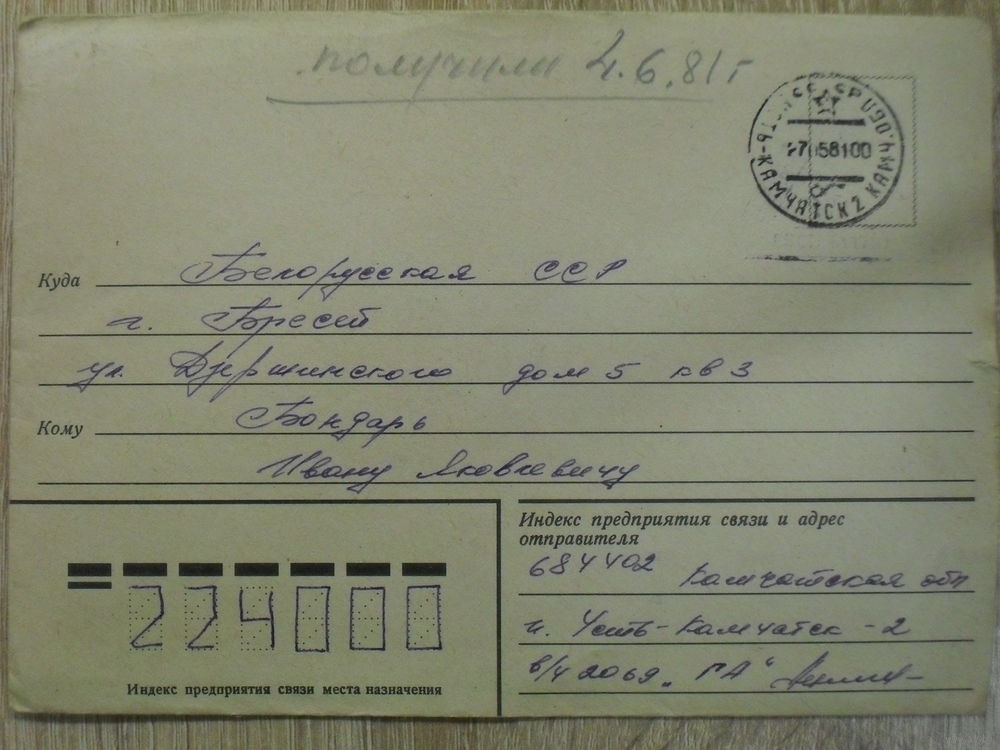 получили 2.6.81г
УСТЬ-КАМЧАТСК 2 КАМЧ.ОБЛ
27058100
Куда Белорусская ССР
г. Брест
ул. Дзержинского дом 5 кв 3
Кому Бондарь
Ивану Яковлевичу
Индекс предприятия связи и адрес
отправителя
684402 Камчатская обл
п. Усть-Камчатск -2
в/ч 2069 „ГА"
224000
Индекс предприятия связи места назначения